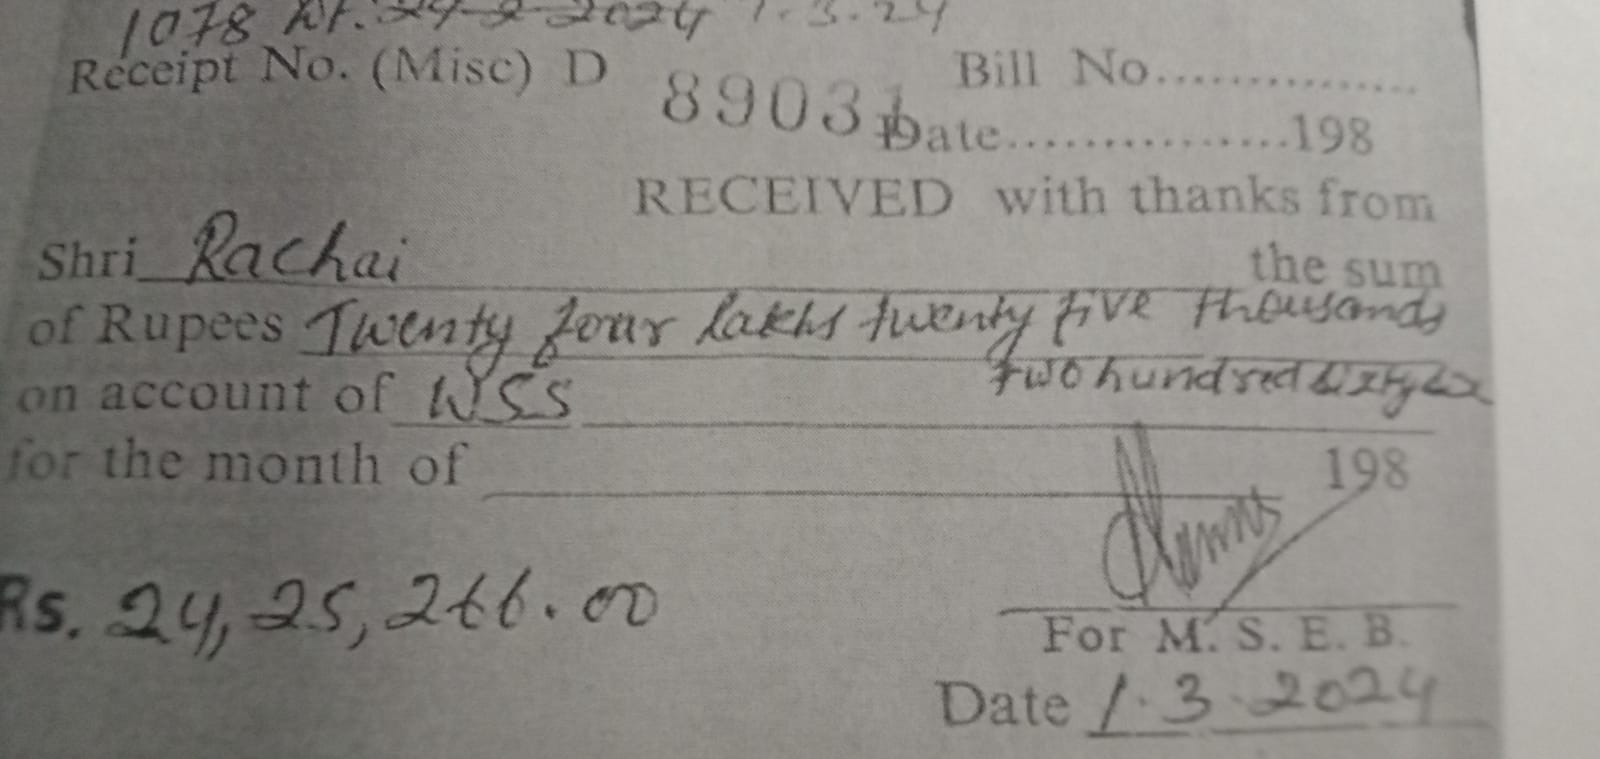 1078 Dt. 29-2-2024 1.3.24
Receipt No. (Misc) D 89031 Bill No..............
Date................198
RECEIVED with thanks from
Shri Rachai the sum
of Rupees Twenty four lakhs twenty five thousands
two hundred sixty six
on account of WSS
for the month of 198
Rs. 24,25,266.00
For M. S. E. B.
Date 1.3.2024